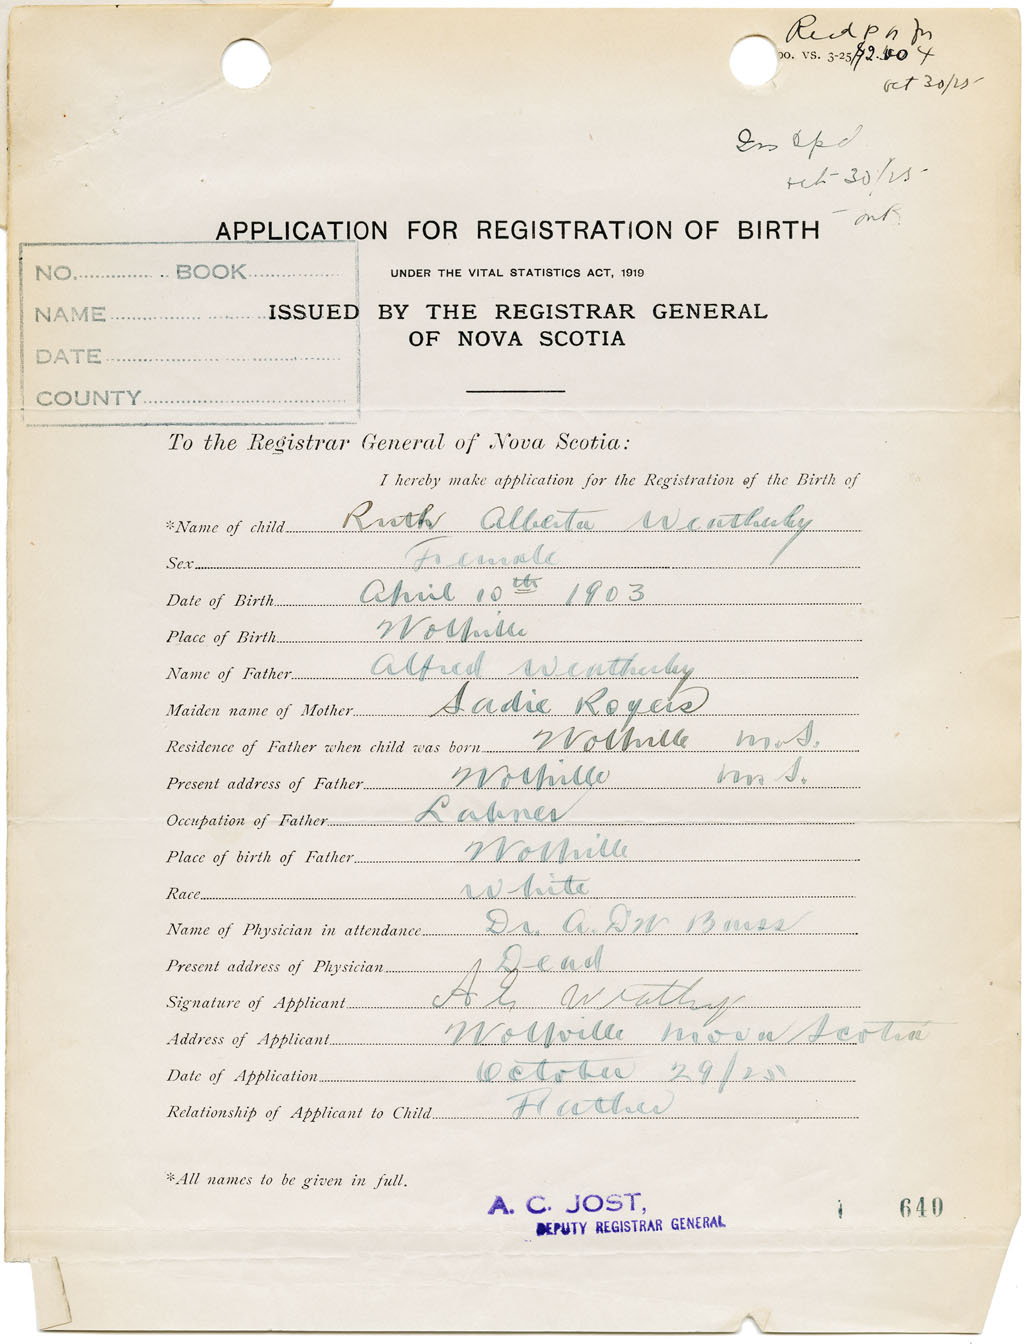 Recd
00. VS. 3-25 $2.00
Oct 30/25
Oct 30/25
APPLICATION FOR REGISTRATION OF BIRTH
UNDER THE VITAL STATISTICS ACT, 1919
ISSUED BY THE REGISTRAR GENERAL
OF NOVA SCOTIA
NO. BOOK
NAME
DATE
COUNTY
To the Registrar General of Nova Scotia:
I hereby make application for the Registration of the Birth of
*Name of child Ruth Alberta Weatherby
Sex Female
Date of Birth April 10th 1903
Place of Birth Wolfville
Name of Father Alfred Weatherby
Maiden name of Mother Sadie Rogers
Residence of Father when child was born Wolfville N.S.
Present address of Father Wolfville N S.
Occupation of Father Laborer
Place of birth of Father Wolfville
Race White
Name of Physician in attendance Dr. A. DW Barss
Present address of Physician Dead
Signature of Applicant A
Address of Applicant Wolfville Nova Scotia
Date of Application October 29/25
Relationship of Applicant to Child Father
*All names to be given in full.
A. C. JOST,
DEPUTY REGISTRAR GENERAL
640